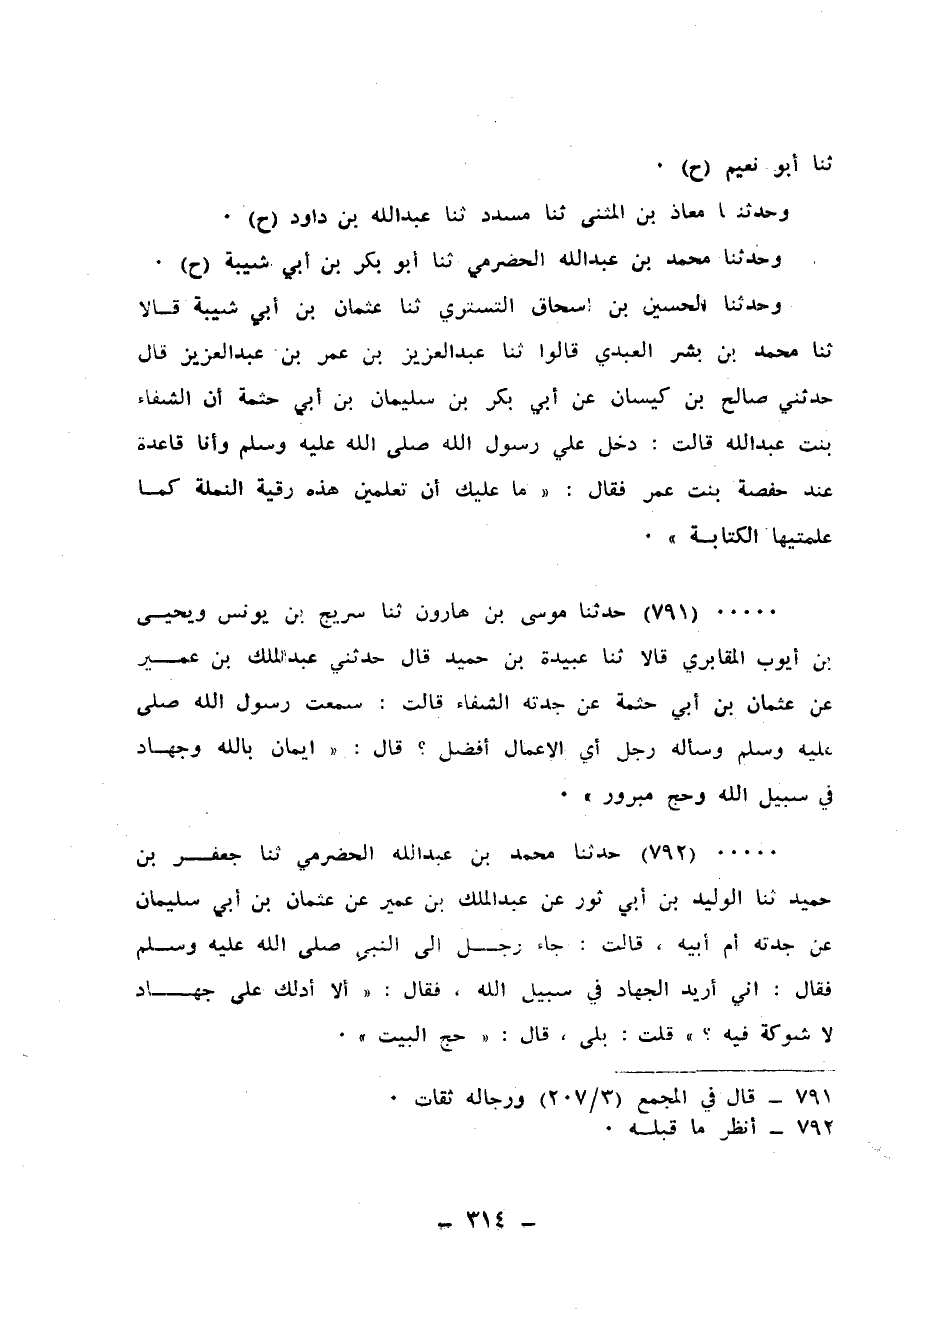 ثنا أبو نعيم (ح) ٠
وحدثنا معاذ بن المثنى ثنا مسدد ثنا عبدالله بن داود (ح) ٠
وحدثنا محمد بن عبدالله الحضرمي ثنا أبو بكر بن أبي شيبة (ح) ٠
وحدثنا الحسين بن اسحاق التستري ثنا عثمان بن أبي شيبة قـالا
ثنا محمد بن بشر العبدي قالوا ثنا عبدالعزيز بن عمر بن عبدالعزيز قال
حدثني صالح بن كيسان عن أبي بكر بن سليمان بن أبي حثمة أن الشفاء
بنت عبدالله قالت : دخل علي رسول الله صلى الله عليه وسلم وأنا قاعدة
عند حفصة بنت عمر فقال : « ما عليك أن تعلمين هذه رقية النملة كمـا
علمتيها الكتابـة » ٠
٠٠٠٠٠ (٧٩١) حدثنا موسى بن هارون ثنا سريج بن يونس ويحيـى
بن أيوب المقابري قالا ثنا عبيدة بن حميد قال حدثني عبدالملك بن عمـــير
عن عثمان بن أبي حثمة عن جدته الشفاء قالت : سمعت رسول الله صلى
عليه وسلم وسأله رجل أي الاعمال أفضل ؟ قال : « ايمان بالله وجهـاد
في سبيل الله وحج مبرور » ٠
٠٠٠٠٠ (٧٩٢) حدثنا محمد بن عبدالله الحضرمي ثنا جعفـــر بن
حميد ثنا الوليد بن أبي ثور عن عبدالملك بن عمير عن عثمان بن أبي سليمان
عن جدته أم أبيه ، قالت : جاء رجــل الى النبي صلى الله عليه وســلم
فقال : اني أريد الجهاد في سبيل الله ، فقال : « ألا أدلك على جهــــاد
لا شوكة فيه ؟ » قلت : بلى ، قال : « حج البيت » ٠
٧٩١ ـ قال في المجمع (٢٠٧/٣) ورجاله ثقات ٠
٧٩٢ ـ أنظر ما قبلـه ٠
ـ ٣١٤ ـ